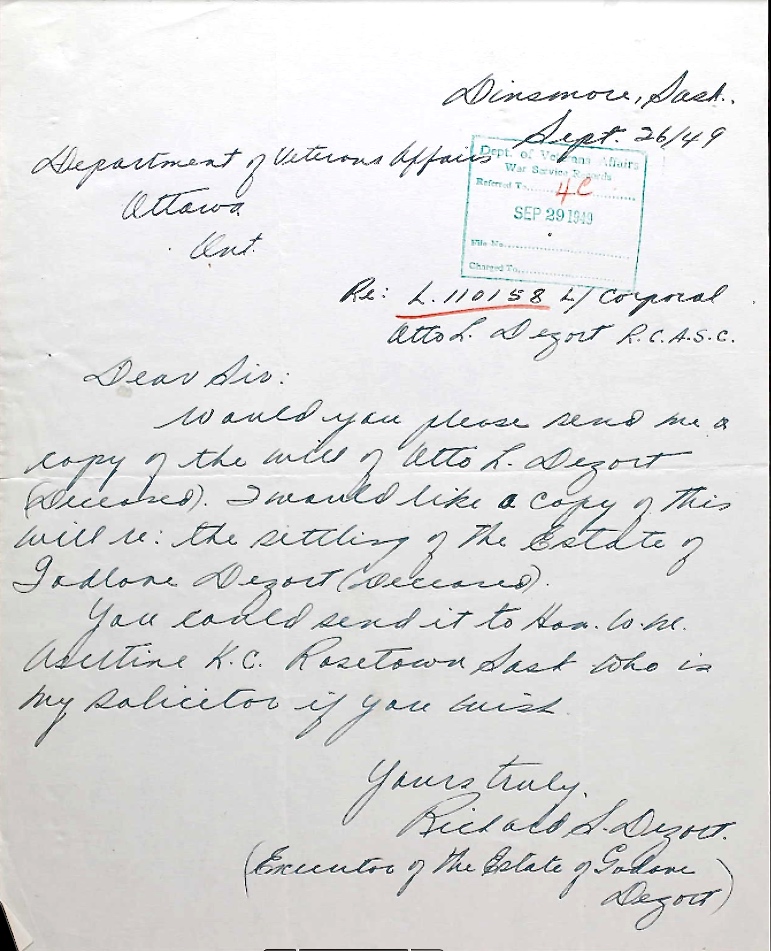 Dinsmore, Sask.,
Sept. 26/49
Department of Veterans Affairs
Ottawa
Ont.
Dept. of Veterans Affairs
War Service Records
Referred To........4C........
SEP 29 1949
File No.
Charged To.
Re: L.110158 L/Corporal
Otto L. Dezort R.C.A.S.C.
Dear Sir:
Would you please send me a
copy of the will of Otto L. Dezort
(Deceased). I would like a copy of this
will re: the settling of the Estate of
Godlove Dezort (Deceased).
You could send it to Hon. W.M.
Aseltine K.C. Rosetown Sask who is
my solicitor if you wish.
Yours truly,
Richard S. Dezort.
(Executor of the Estate of Godove
Dezort)